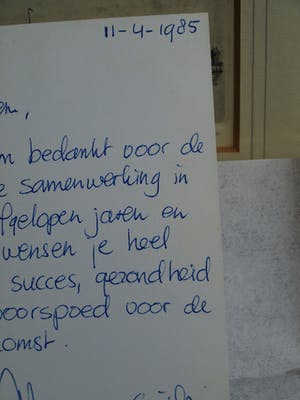 11-4-1985
m bedankt voor de
e samenwerking in
fgelopen jaren en
wensen je heel
succes, gezondheid
voorspoed voor de
omst.